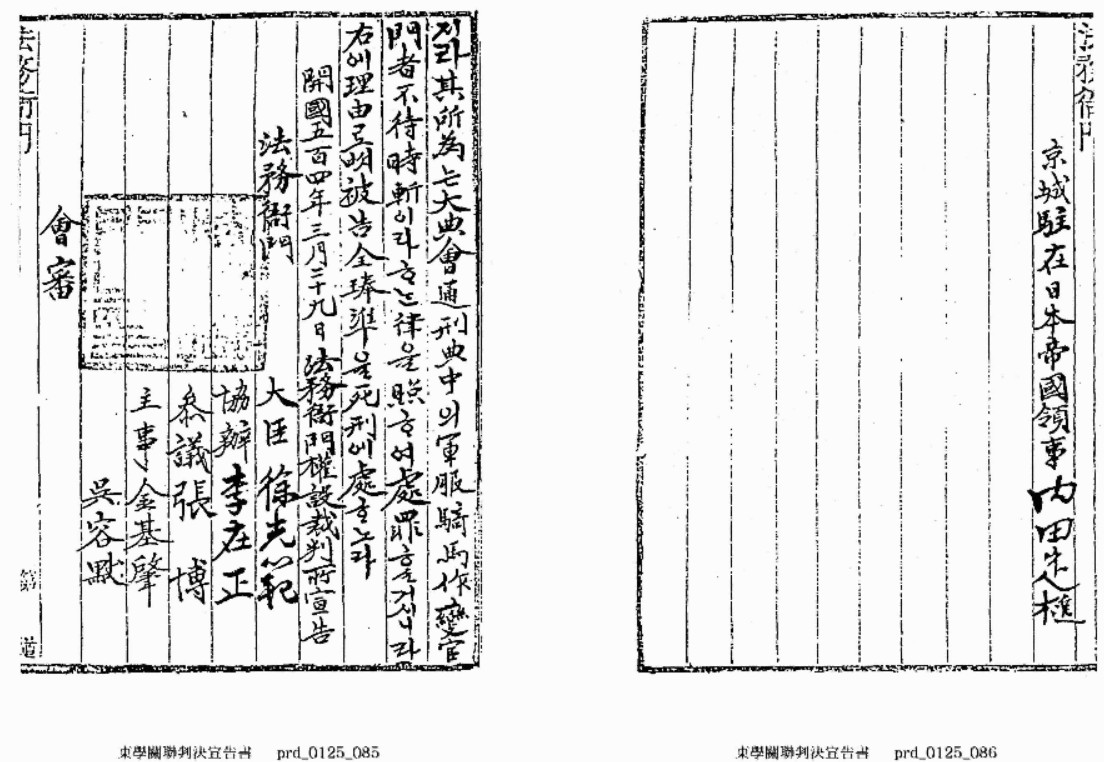 지라其所爲는大典會通刑典中의軍服騎馬作變官
門者不待時斬이라ᄒᆞᄂᆞᆫ律을照ᄒᆞ여處罪ᄒᆞᆯ거시니라
右에理由로明被告全琫準을死刑에處ᄒᆞ노라
開國五百四年三月二十九日法務衙門權設裁判所宣告
法務衙門 大臣 徐光範
協辦 李在正
參議 張 博
主事 金基肇
吳容默
會審
法務衙門
東學關聯判決宣告書 prd_0125_085
法務衙門
京城駐在日本帝國領事 內田定槌
東學關聯判決宣告書 prd_0125_086